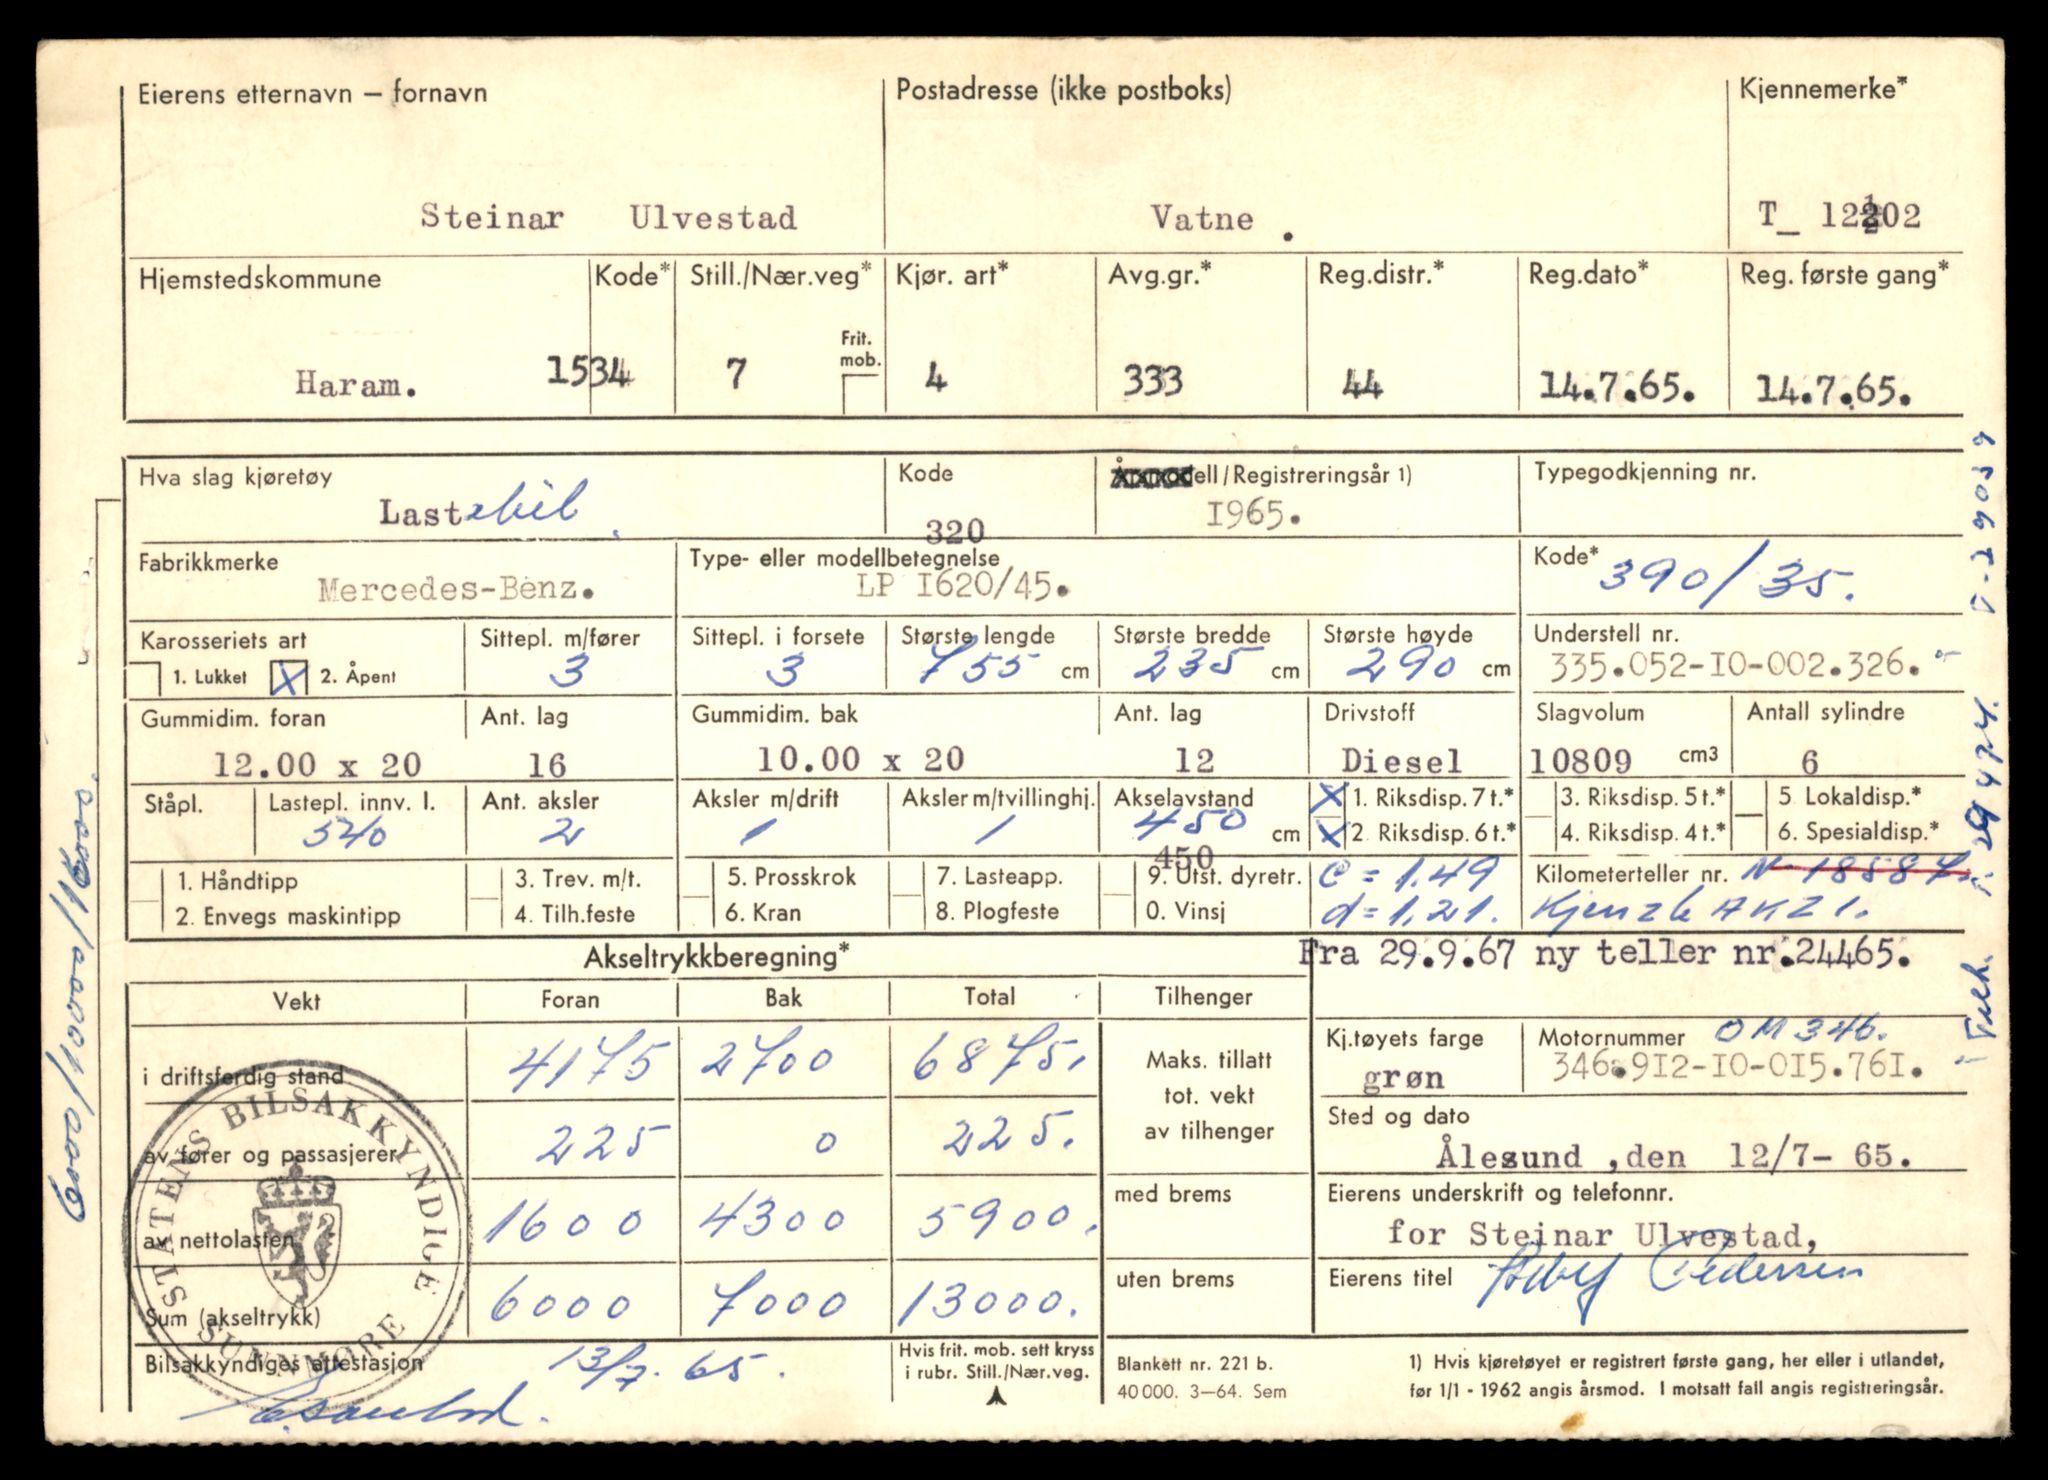 Eierens etternavn – fornavn Postadresse (ikke postboks) Kjennemerke*
Steinar Ulvestad Vatne. T_ 12202
Hjemstedskommune Kode* Still./Nær.veg* Kjør. art* Avg.gr.* Reg.distr.* Reg.dato* Reg. første gang*
Frit. mob.
Haram. 1534 7 4 333 44 14.7.65. 14.7.65.
Hva slag kjøretøy Kode Årsmodell/Registreringsår 1) Typegodkjenning nr.
Lastebil. 320 I965.
Fabrikkmerke Type- eller modellbetegnelse Kode*
Mercedes-Benz. LP I620/45. 390/35.
Karosseriets art Sittepl. m/fører Sittepl. i forsete Største lengde Største bredde Største høyde Understell nr.
1. Lukket X 2. Åpent 3 3 755 cm 235 cm 290 cm 335.052-IO-002.326.
Gummidim. foran Ant. lag Gummidim. bak Ant. lag Drivstoff Slagvolum Antall sylindre
12.00 x 20 16 10.00 x 20 12 Diesel 10809 cm3 6
Ståpl. Lastepl. innv. l. Ant. aksler Aksler m/drift Aksler m/tvillinghj. Akselavstand X 1. Riksdisp. 7 t.* 3. Riksdisp. 5 t.* 5 Lokaldisp.*
540 2 1 1 450 cm X 2. Riksdisp. 6 t.* 4. Riksdisp. 4 t.* 6. Spesialdisp.*
450
1. Håndtipp 3. Trev. m/t. 5. Prosskrok 7. Lasteapp. 9. Utst. dyretr. c = 1.49 Kilometerteller nr. N-18587.
2. Envegs maskintipp 4. Tilh.feste 6. Kran 8. Plogfeste 0. Vinsj d = 1,21. Kjenzle AK21.
Akseltrykkberegning* Fra 29.9.67 ny teller nr.24465.
Vekt Foran Bak Total Tilhenger
i driftsferdig stand 4175 2700 6875.
av fører og passasjerer 225 0 225.
av nettolasten 1600 4300 5900.
Sum (akseltrykk) 6000 7000 13000.
Maks. tillatt
tot. vekt
av tilhenger
med brems
uten brems
Kj.tøyets farge Motornummer OM 346.
grøn 346.9I2-IO-OI5.76I.
Sted og dato
Ålesund ,den 12/7- 65.
Eierens underskrift og telefonnr.
for Steinar Ulvestad,
Eierens titel Pedersen
STATENS BILSAKKYNDIGE
SUNNMØRE
Bilsakkyndiges attestasjon 13/7. 65.
Hvis frit. mob. sett kryss
i rubr. Still./Nær.veg.
Blankett nr. 221 b.
40 000. 3–64. Sem
1) Hvis kjøretøyet er registrert første gang, her eller i utlandet,
før 1/1 - 1962 angis årsmod. I motsatt fall angis registreringsår.
Tilh. T. 29474. T-29039